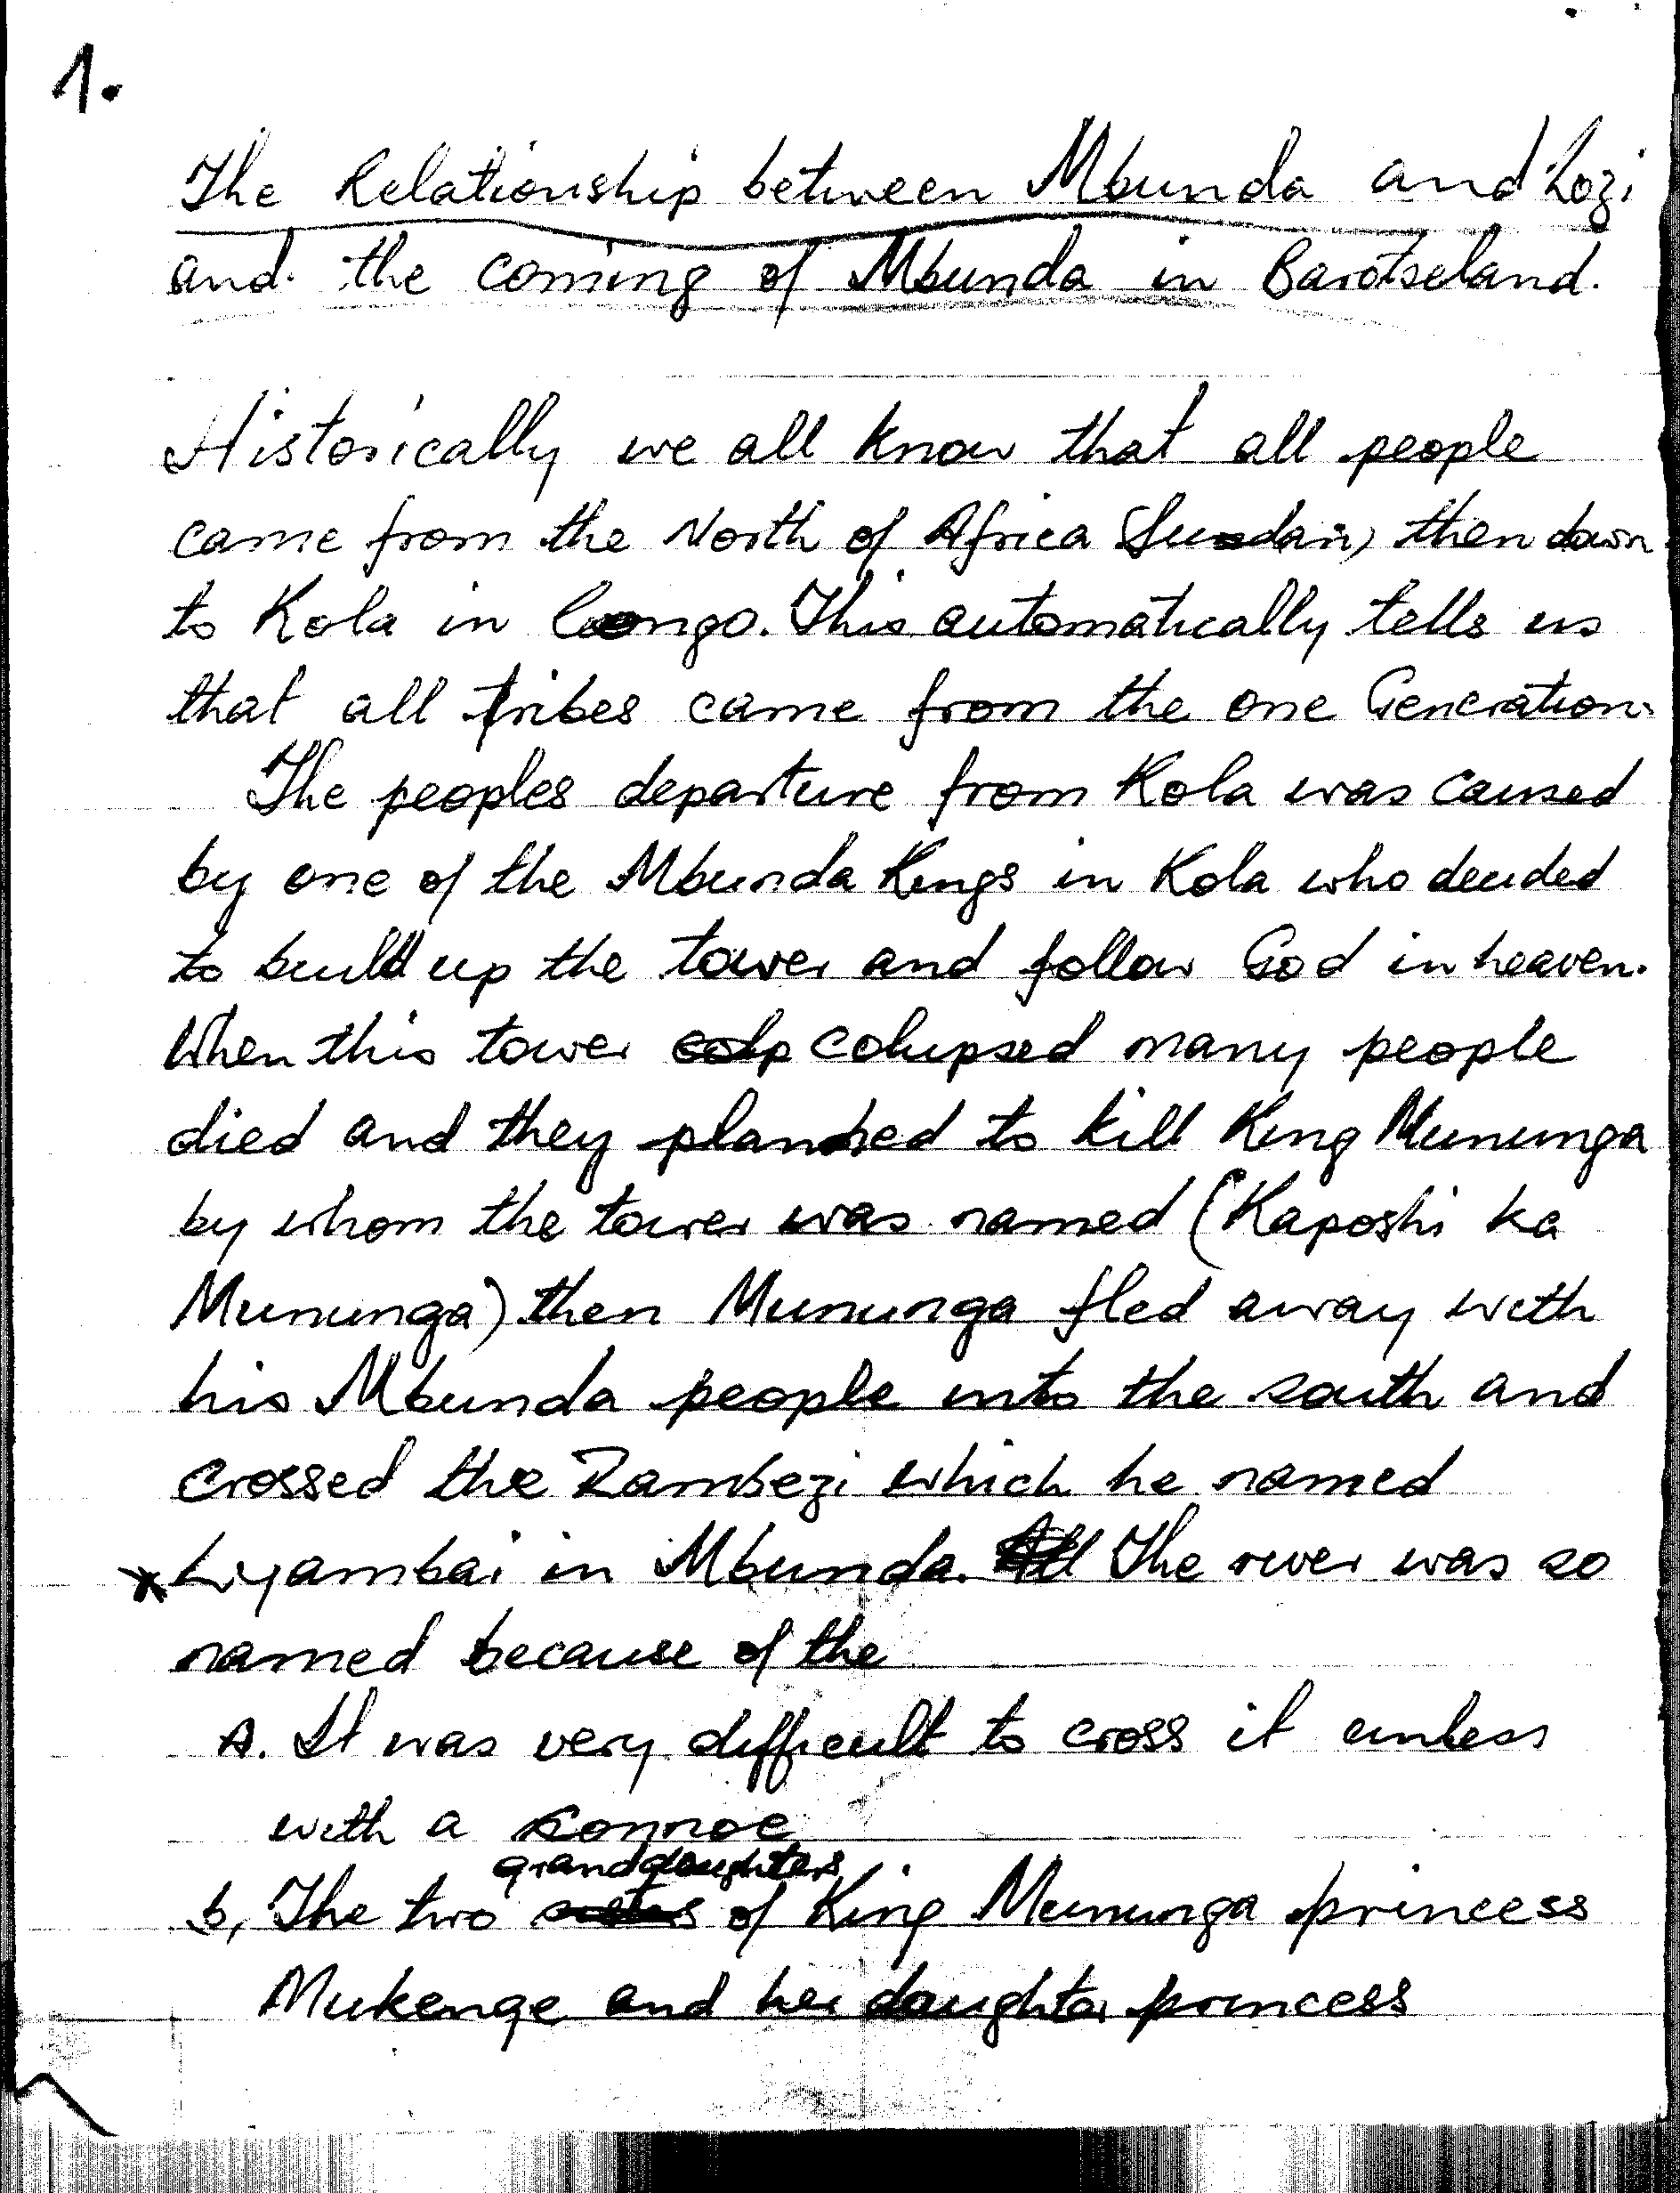 1.
The Relationship between Mbunda and Lozi
and the coming of Mbunda in Barotseland.
Historically we all know that all people
came from the North of Africa (Sundan) then down
to Kola in Congo. This automatically tells us
that all tribes came from the one Generation.
The peoples departure from Kola was caused
by one of the Mbunda Kings in Kola who decided
to build up the tower and follow God in heaven.
When this tower colp colupsed many people
died and they planned to kill King Mununga
by whom the tower was named (Kaposhi ka
Mununga) then Mununga fled away with
his Mbunda people into the south and
crossed the Zambezi which he named
* Liyambai in Mbunda. All The river was so
named because of the
A. It was very difficult to cross it unless
with a connoe
granddaughters
b, The two sisters of King Mununga princess
Mukenge and her daughter princess